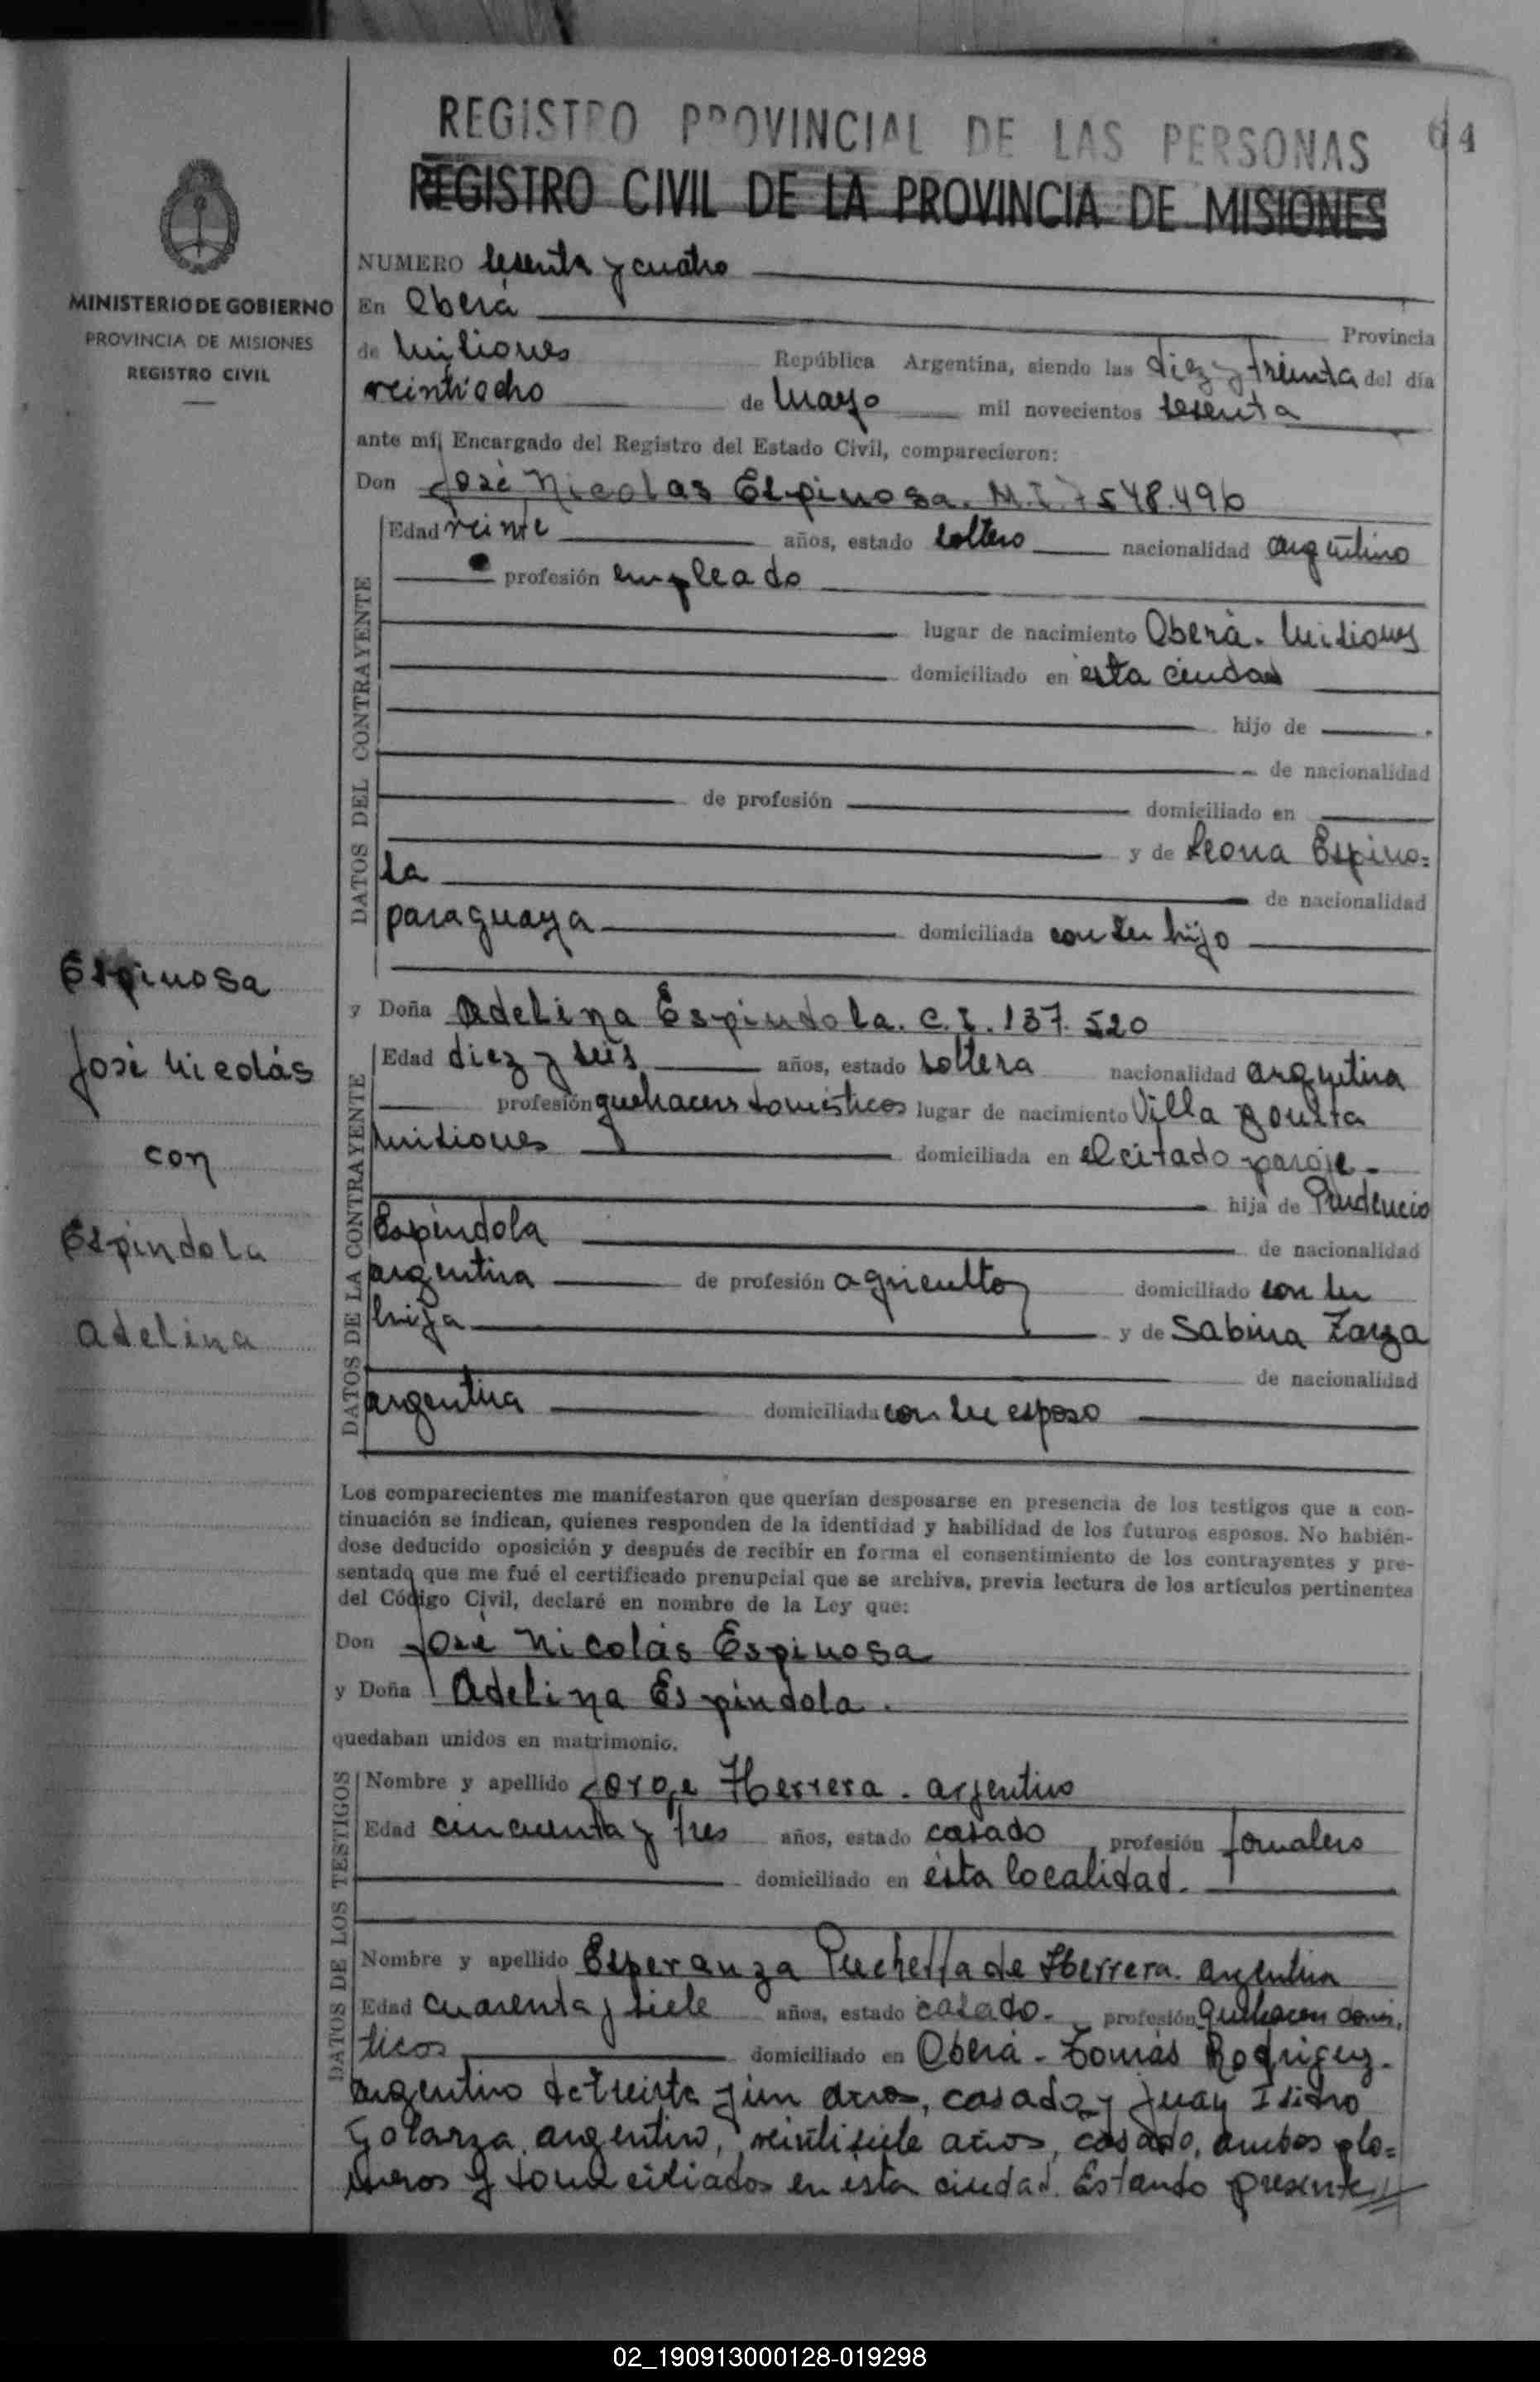 REGISTRO PROVINCIAL DE LAS PERSONAS 64
REGISTRO CIVIL DE LA PROVINCIA DE MISIONES
MINISTERIO DE GOBIERNO
PROVINCIA DE MISIONES
REGISTRO CIVIL
NUMERO sesenta y cuatro
En Oberá Provincia
de Misiones República Argentina, siendo las diez y treinta del día
veintiocho de Mayo mil novecientos sesenta
ante mí, Encargado del Registro del Estado Civil, comparecieron:
Don José Nicolas Espinosa. M.I. 7548.496
DATOS DEL CONTRAYENTE
Edad veinte años, estado soltero nacionalidad argentino
profesión empleado
lugar de nacimiento Oberá. Misiones
domiciliado en esta ciudad
hijo de
de nacionalidad
de profesión domiciliado en
y de Leona Espino=
sa de nacionalidad
paraguaya domiciliada con su hijo
Espinosa
José Nicolás
con
Espindola
Adelina
y Doña Adelina Espindola. C.I. 137.520
DATOS DE LA CONTRAYENTE
Edad diez y seis años, estado soltera nacionalidad argentina
profesión quehaceres domésticos lugar de nacimiento Villa Bonita
Misiones domiciliada en el citado paraje.
hija de Prudencio
Espíndola de nacionalidad
argentina de profesión agricultor domiciliado con su
hija y de Sabina Zarza
de nacionalidad
argentina domiciliada con su esposo
Los comparecientes me manifestaron que querían desposarse en presencia de los testigos que a con-
tinuación se indican, quienes responden de la identidad y habilidad de los futuros esposos. No habién-
dose deducido oposición y después de recibir en forma el consentimiento de los contrayentes y pre-
sentado que me fué el certificado prenupcial que se archiva, previa lectura de los artículos pertinentes
del Código Civil, declaré en nombre de la Ley que:
Don José Nicolás Espinosa
y Doña Adelina Espindola.
quedaban unidos en matrimonio.
DATOS DE LOS TESTIGOS
Nombre y apellido Jorge Herrera. argentino
Edad cincuenta y tres años, estado casado profesión jornalero
domiciliado en esta localidad.
Nombre y apellido Esperanza Puchetta de Herrera. argentina
Edad cuarenta y siete años, estado casado. profesión quehaceres domés.
ticos domiciliado en Oberá. Tomás Rodriguez.
argentino de treinta y un años, casado y Juan Isidro
Golarza, argentino, veintisiete años, casado, ambos plo=
meros y domiciliados en esta ciudad. Estando presente//
02_190913000128-019298